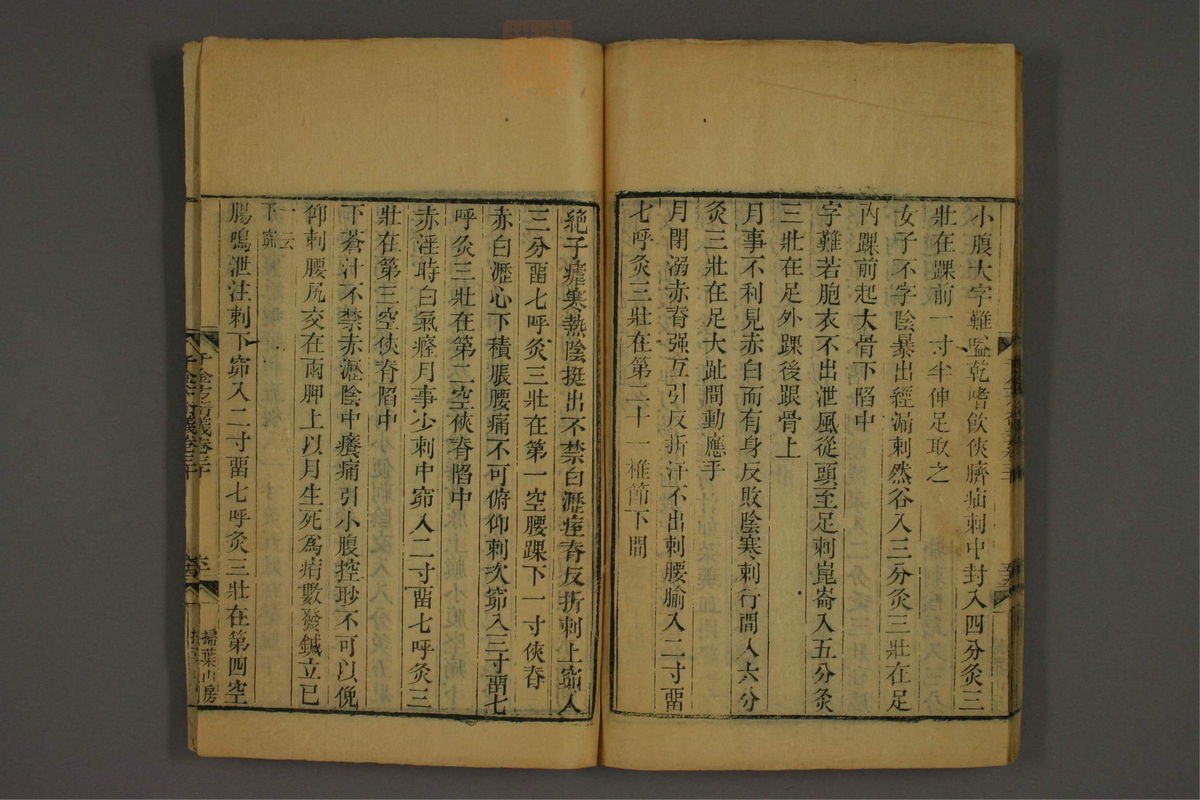 小腹大字難嗌乾嗜飲俠臍疝刺中封入四分灸三
壯在踝前一寸半伸足取之
女子不字陰暴出經漏刺然谷入三分灸三壯在足
內踝前起大骨下陷中
字難若胞衣不出泄風從頭至足刺崑崙入五分灸
三壯在足外踝後跟骨上
月事不利見赤白而有身反敗陰寒刺行間入六分
灸三壯在足大趾間動應手
月閉溺赤脊强互引反折汗不出刺腰腧入二寸畱
七呼灸三壯在第二十一椎節下間
絶子瘧寒熱陰挺出不禁白瀝痓脊反折刺上窌入
三分畱七呼灸三壯在第一空腰踝下一寸俠脊
赤白瀝心下積脹腰痛不可俯仰刺次窌入三寸畱七
呼灸三壯在第二空俠脊陷中
赤淫時白氣癃月事少刺中窌入二寸畱七呼灸三
壯在第三空俠脊陷中
下蒼汁不禁赤瀝陰中癢痛引小腹控䏚不可以俛
仰刺腰尻交在兩胂上以月生死爲痏數發鍼立已
一云
下窌
腸鳴泄注刺下窌入二寸畱七呼灸三壯在第四空
千金方衍義卷三十
掃葉山房